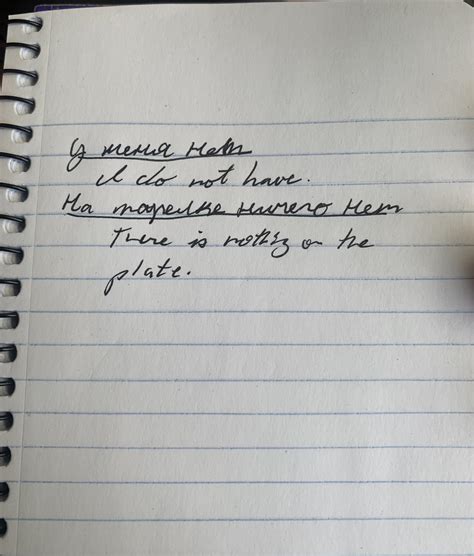 У меня нет
I do not have.
На тарелке ничего нет
There is nothing on the
plate.